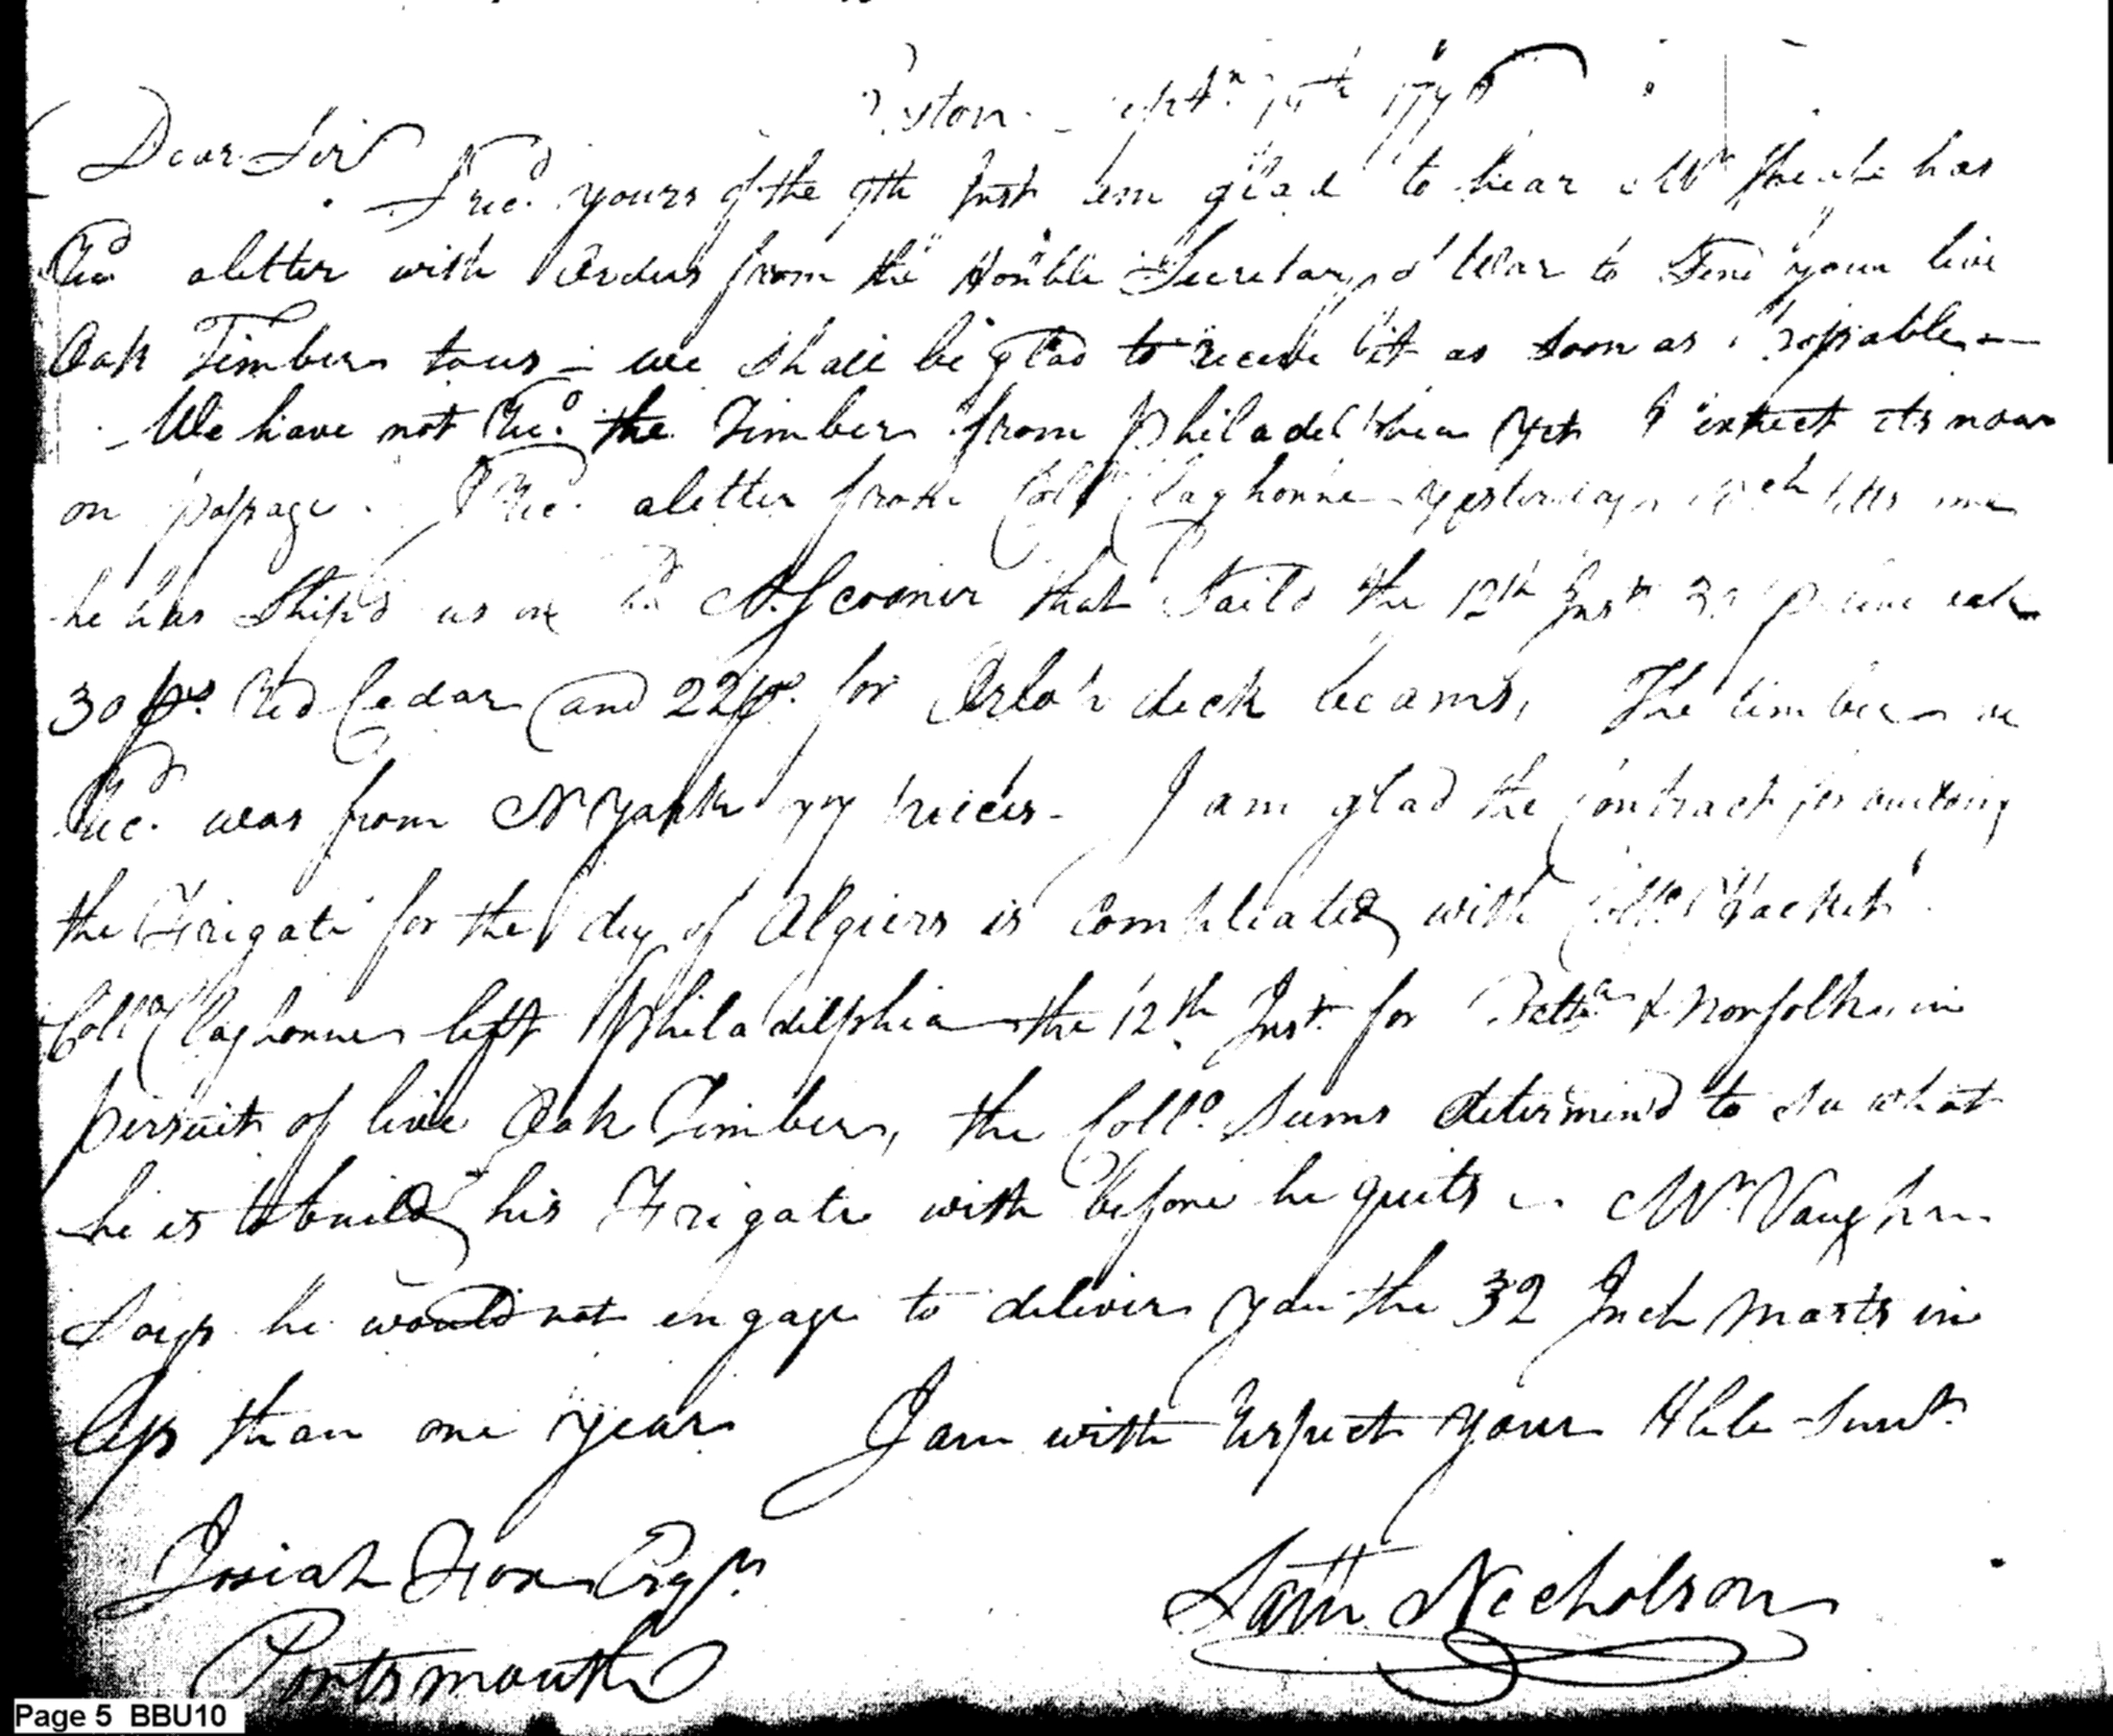 Dear Sir
I rec.d yours of the 9th Inst am glad to hear Mr has
Rec.d a letter with Orders from the Honble Secretary of War to Send your live
Oak Timber to us - we shall be glad to receive it as soon as possable -
We have not Rec.d the Timber from Philadelphia Yet I expect its now
on passage. I Rec.d a letter from Coll.o Claghorne yesterday wch tells me
he has Ship'd us on A Scooner that Saild the 12th Inst. 
30 ps. Red Cedar and 22 ps. for Orlop deck beams, The timber we
Rec.d was from N York pieces - I am glad the Contract for building
the Frigate for the dey of Algiers is compleated with Coll.o Hacket
Coll.o Claghorne left Philadelphia the 12th Inst. for & Norfolk in
persuit of live Oak Timber, the Coll.o Seems determin'd to see what
he is to build his Frigate with before he quits - Mr. Vaughn
Says he would not engage to deliver you the 32 Inch Masts in
less than one year I am with respect your Hble Servt.
Josiah Fox Esqr.
Saml. Nicholson
Portsmouth
Page 5 BBU10